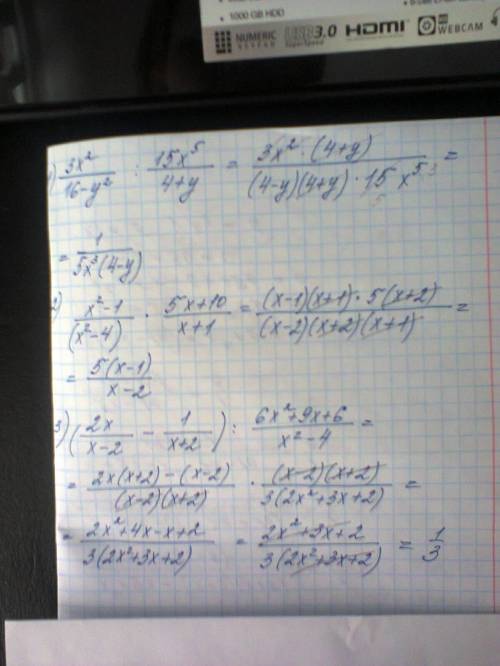 1000 GB HDD
NUMERIC
USB 3.0
SuperSpeed
HDMI
HD
WEBCAM
1) 3x²/(16-y²) : 15x⁵/(4+y) = 3x²·(4+y)/((4-y)(4+y)·15x⁵) =
= 1/(5x³(4-y))
2) (x²-1)/(x²-4) · (5x+10)/(x+1) = (x-1)(x+1)·5(x+2)/((x-2)(x+2)(x+1)) =
= 5(x-1)/(x-2)
3) (2x/(x-2) - 1/(x+2)) : (6x²+9x+6)/(x²-4) =
= (2x(x+2)-(x-2))/((x-2)(x+2)) · (x-2)(x+2)/(3(2x²+3x+2)) =
= (2x²+4x-x+2)/(3(2x²+3x+2)) = (2x²+3x+2)/(3(2x²+3x+2)) = 1/3